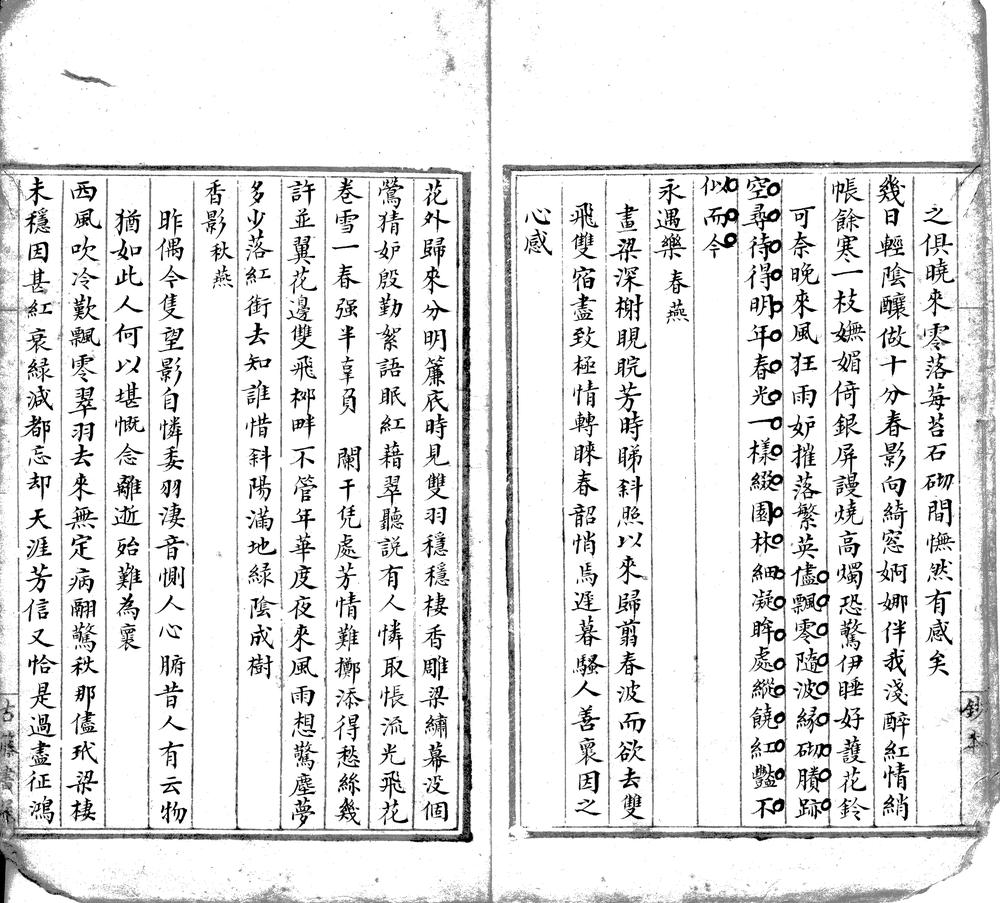 之俱曉來零落莓苔石砌間憮然有感矣
幾日輕陰釀做十分春影向綺窓婀娜伴我淺醉紅情綃
帳餘寒一枝嫵媚倚銀屏謾燒高燭恐驚伊睡好護花鈴
可奈晚來風狂雨妒摧落繁英儘飄零隨波緣砌賸跡
空尋待得明年春光一樣綴園林細凝眸處縱饒紅豔不
似而今
永遇樂春燕
畫梁深榭睍睆芳時睇斜照以來歸翦春波而欲去雙
飛雙宿盡致極情轉睞春韶悄焉遲暮騷人善裏因之
心感
花外歸來分明簾底時見雙羽穩穩棲香雕梁繡幕没個
鶯猜妒殷勤絮語眠紅藉翠聽說有人憐取帳流光飛花
卷雪一春强半辜負 闌干凭處芳情難擲添得愁絲幾
許並翼花邊雙飛柳畔不管年華度夜來風雨想驚塵夢
多少落紅銜去知誰惜斜陽滿地緑陰成樹
香影秋燕
昨偶今隻望影自憐委羽淒音惻人心腑昔人有云物
猶如此人何以堪慨念離逝殆難為裏
西風吹冷歎飄零翠羽去來無定病翮驚秋那儘玳梁棲
未穩因甚紅衰緑減都忘却天涯芳信又恰是過盡征鴻
鈔本